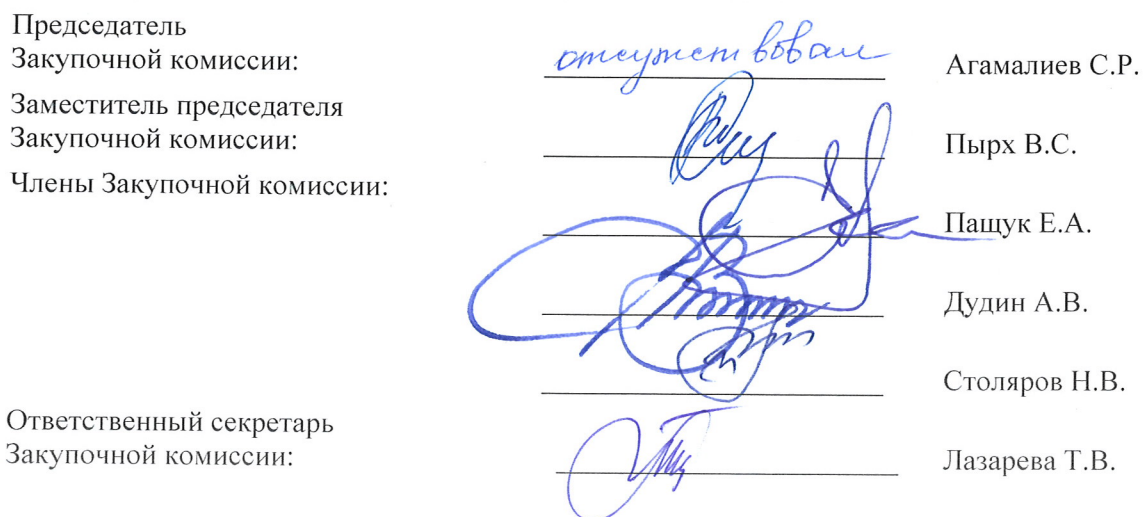 Председатель
Закупочной комиссии: отсутствовал Агамалиев С.Р.
Заместитель председателя
Закупочной комиссии: Пырх В.С.
Члены Закупочной комиссии:
Пащук Е.А.
Дудин А.В.
Столяров Н.В.
Ответственный секретарь
Закупочной комиссии: Лазарева Т.В.